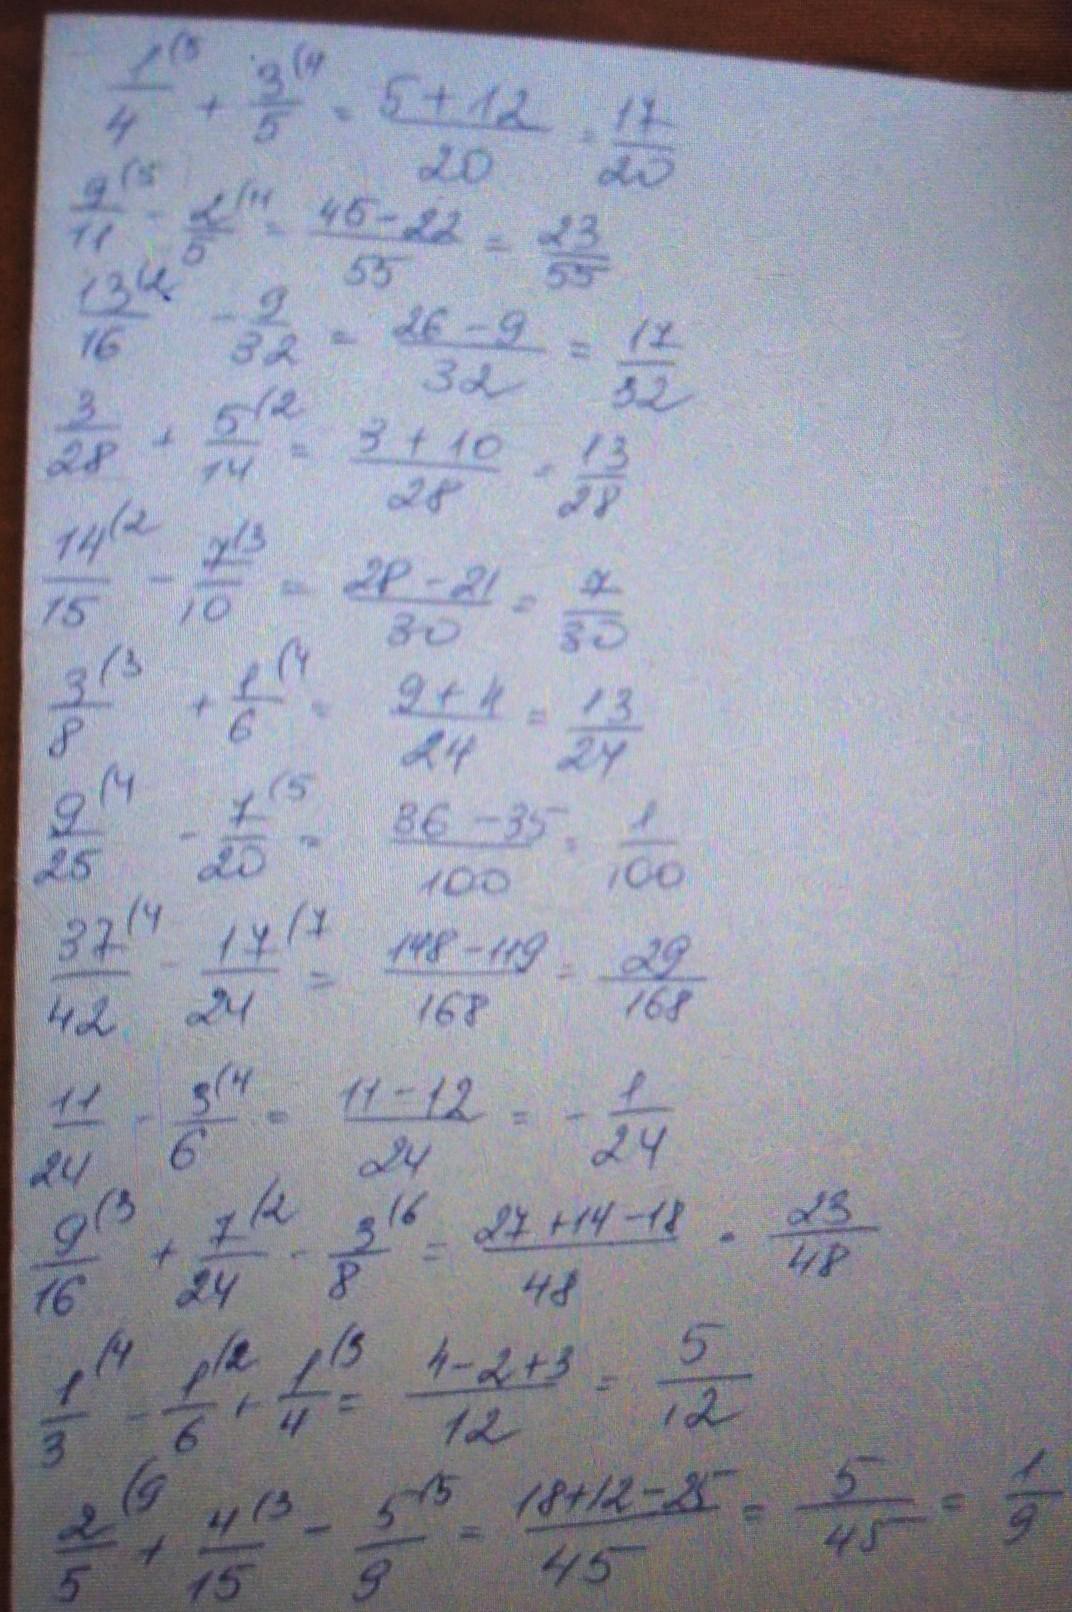 1(5/4 + 3(4/5 = 5+12/20 = 17/20
9(5/11 - 2(11/5 = 45-22/55 = 23/55
13(2/16 - 9/32 = 26-9/32 = 17/32
3/28 + 5(2/14 = 3+10/28 = 13/28
14(2/15 - 7(3/10 = 28-21/30 = 7/30
3(3/8 + 1(4/6 = 9+4/24 = 13/24
9(4/25 - 7(5/20 = 36-35/100 = 1/100
37(4/42 - 17(7/24 = 148-119/168 = 29/168
11/24 - 3(4/6 = 11-12/24 = -1/24
9(3/16 + 7(2/24 - 3(6/8 = 27+14-18/48 = 23/48
1(4/3 - 1(2/6 + 1(3/4 = 4-2+3/12 = 5/12
2(9/5 + 4(3/15 - 5(5/9 = 18+12-25/45 = 5/45 = 1/9